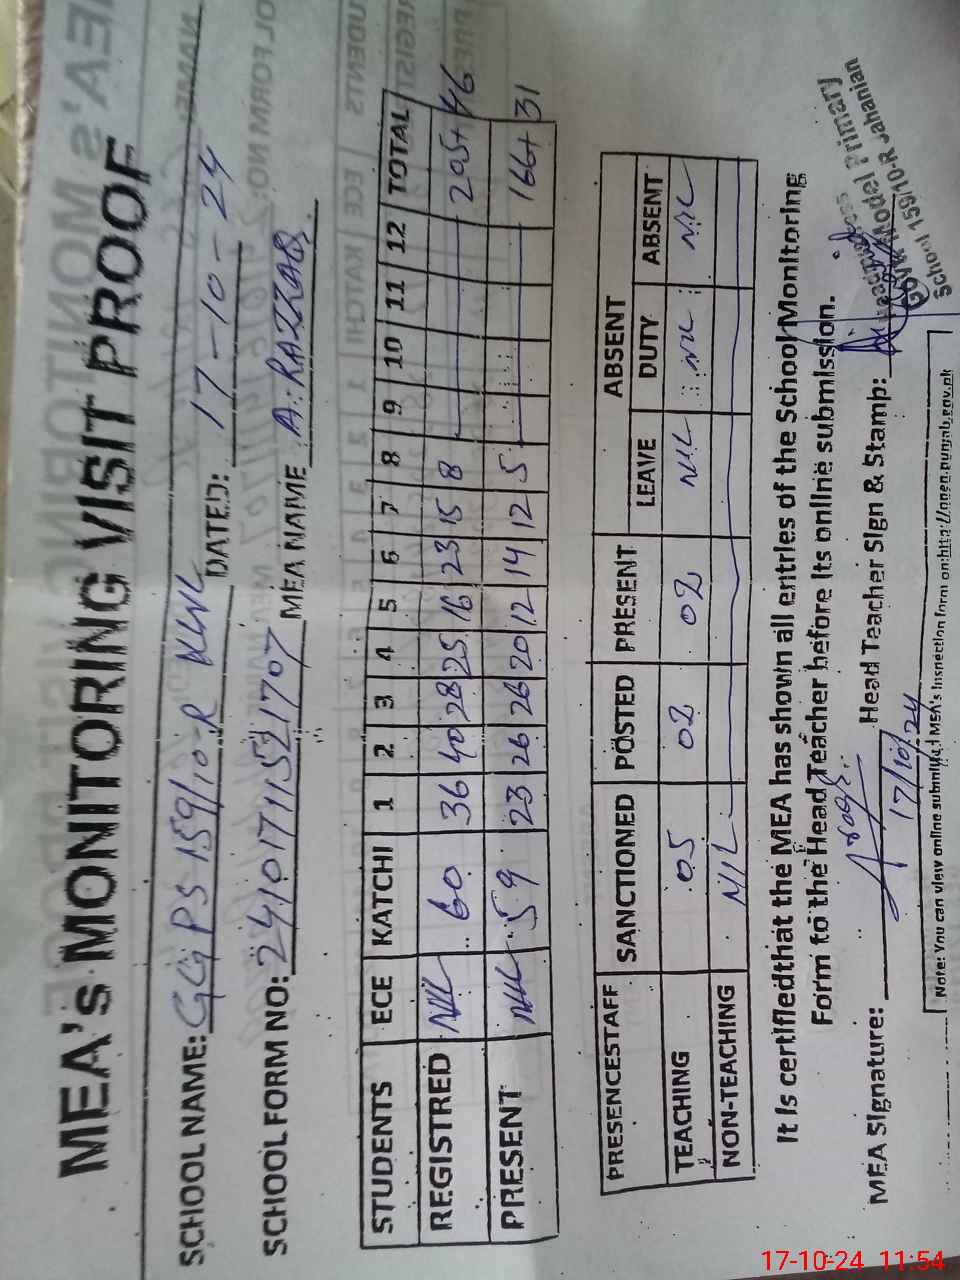 MEA's MONITORING VISIT PROOF
SCHOOL NAME: GGPS 159/10-R KWL DATED: 17-10-24
SCHOOL FORM NO: 24101711521707 MEA NAME A. RAZZAQ
STUDENTS ECE KATCHI 1 2 3 4 5 6 7 8 9 10 11 12 TOTAL
REGISTRED NIL 60 36 40 28 25 16 23 15 8 205+46
PRESENT NIL 59 23 26 26 20 12 14 12 5 166+31
PRESENCESTAFF SANCTIONED POSTED PRESENT ABSENT
LEAVE DUTY ABSENT
TEACHING 05 02 02 NIL NIL NIL
NON-TEACHING NIL
It is certifiedthat the MEA has shown all entries of the School Monitoring
Form to the Head Teacher before its online submission.
MEA Signature: Head Teacher Sign & Stamp:
17/10/24
Model Primary
School 159/10-R Jahanian
Note: You can view online submitted MEA's Inspection form on:http://open.punjab.gov.pk
17-10-24 11:54